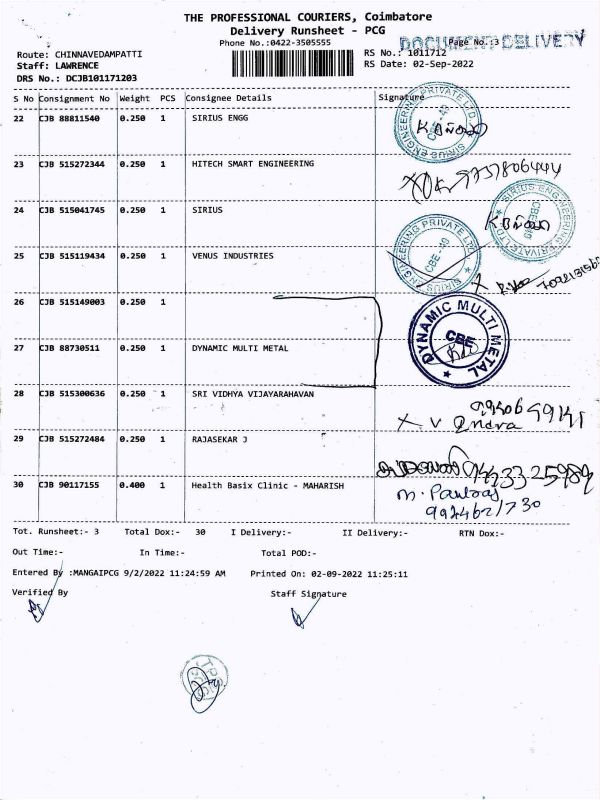 THE PROFESSIONAL COURIERS, Coimbatore
Delivery Runsheet - PCG
Phone No.:0422-3505555
DOCUMENT DELIVERY
Page No.:3
Route: CHINNAVEDAMPATTI
RS No.: 1011712
Staff: LAWRENCE
RS Date: 02-Sep-2022
DRS No.: DCJB101171203
S No Consignment No Weight PCS Consignee Details Signature
22 CJB 88811540 0.250 1 SIRIUS ENGG
SIRIUS ENGINEERING PRIVATE LTD
23 CJB 515272344 0.250 1 HITECH SMART ENGINEERING
9751806444
24 CJB 515041745 0.250 1 SIRIUS
SIRIUS ENGINEERING PRIVATE LTD
25 CJB 515119434 0.250 1 VENUS INDUSTRIES
SIRIUS ENGINEERING PRIVATE LTD
CBE -10
26 CJB 515149003 0.250 1
27 CJB 88730511 0.250 1 DYNAMIC MULTI METAL
DYNAMIC MULTI METAL
CBE
28 CJB 515300636 0.250 1 SRI VIDHYA VIJAYARAHAVAN
29 CJB 515272484 0.250 1 RAJASEKAR J
30 CJB 90117155 0.400 1 Health Basix Clinic - MAHARISH
Tot. Runsheet:- 3 Total Dox:- 30 I Delivery:- II Delivery:- RTN Dox:-
Out Time:- In Time:- Total POD:-
Entered By :MANGAIPCG 9/2/2022 11:24:59 AM Printed On: 02-09-2022 11:25:11
Verified By Staff Signature